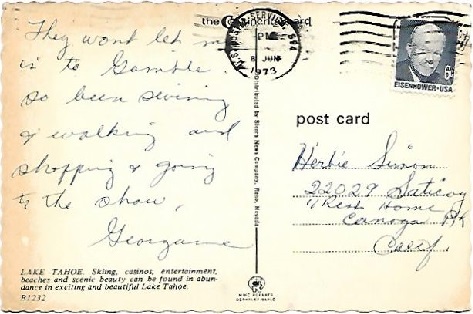 They wont let m
is to Gamble.
so been swiming
& walking and
shopping & going
to the show,
Georganne
LAKE TAHOE. Skiing, casinos, entertainment,
beaches and scenic beauty can be found in abun-
dance in exciting and beautiful Lake Tahoe.
B1232
Distributed by Sierra News Company, Reno, Nevada
PM
8 JUN
1973
6¢
EISENHOWER·USA
post card
Herbie Simon
22029 Saticoy
Rest Home
Canoga Pk
Calif.